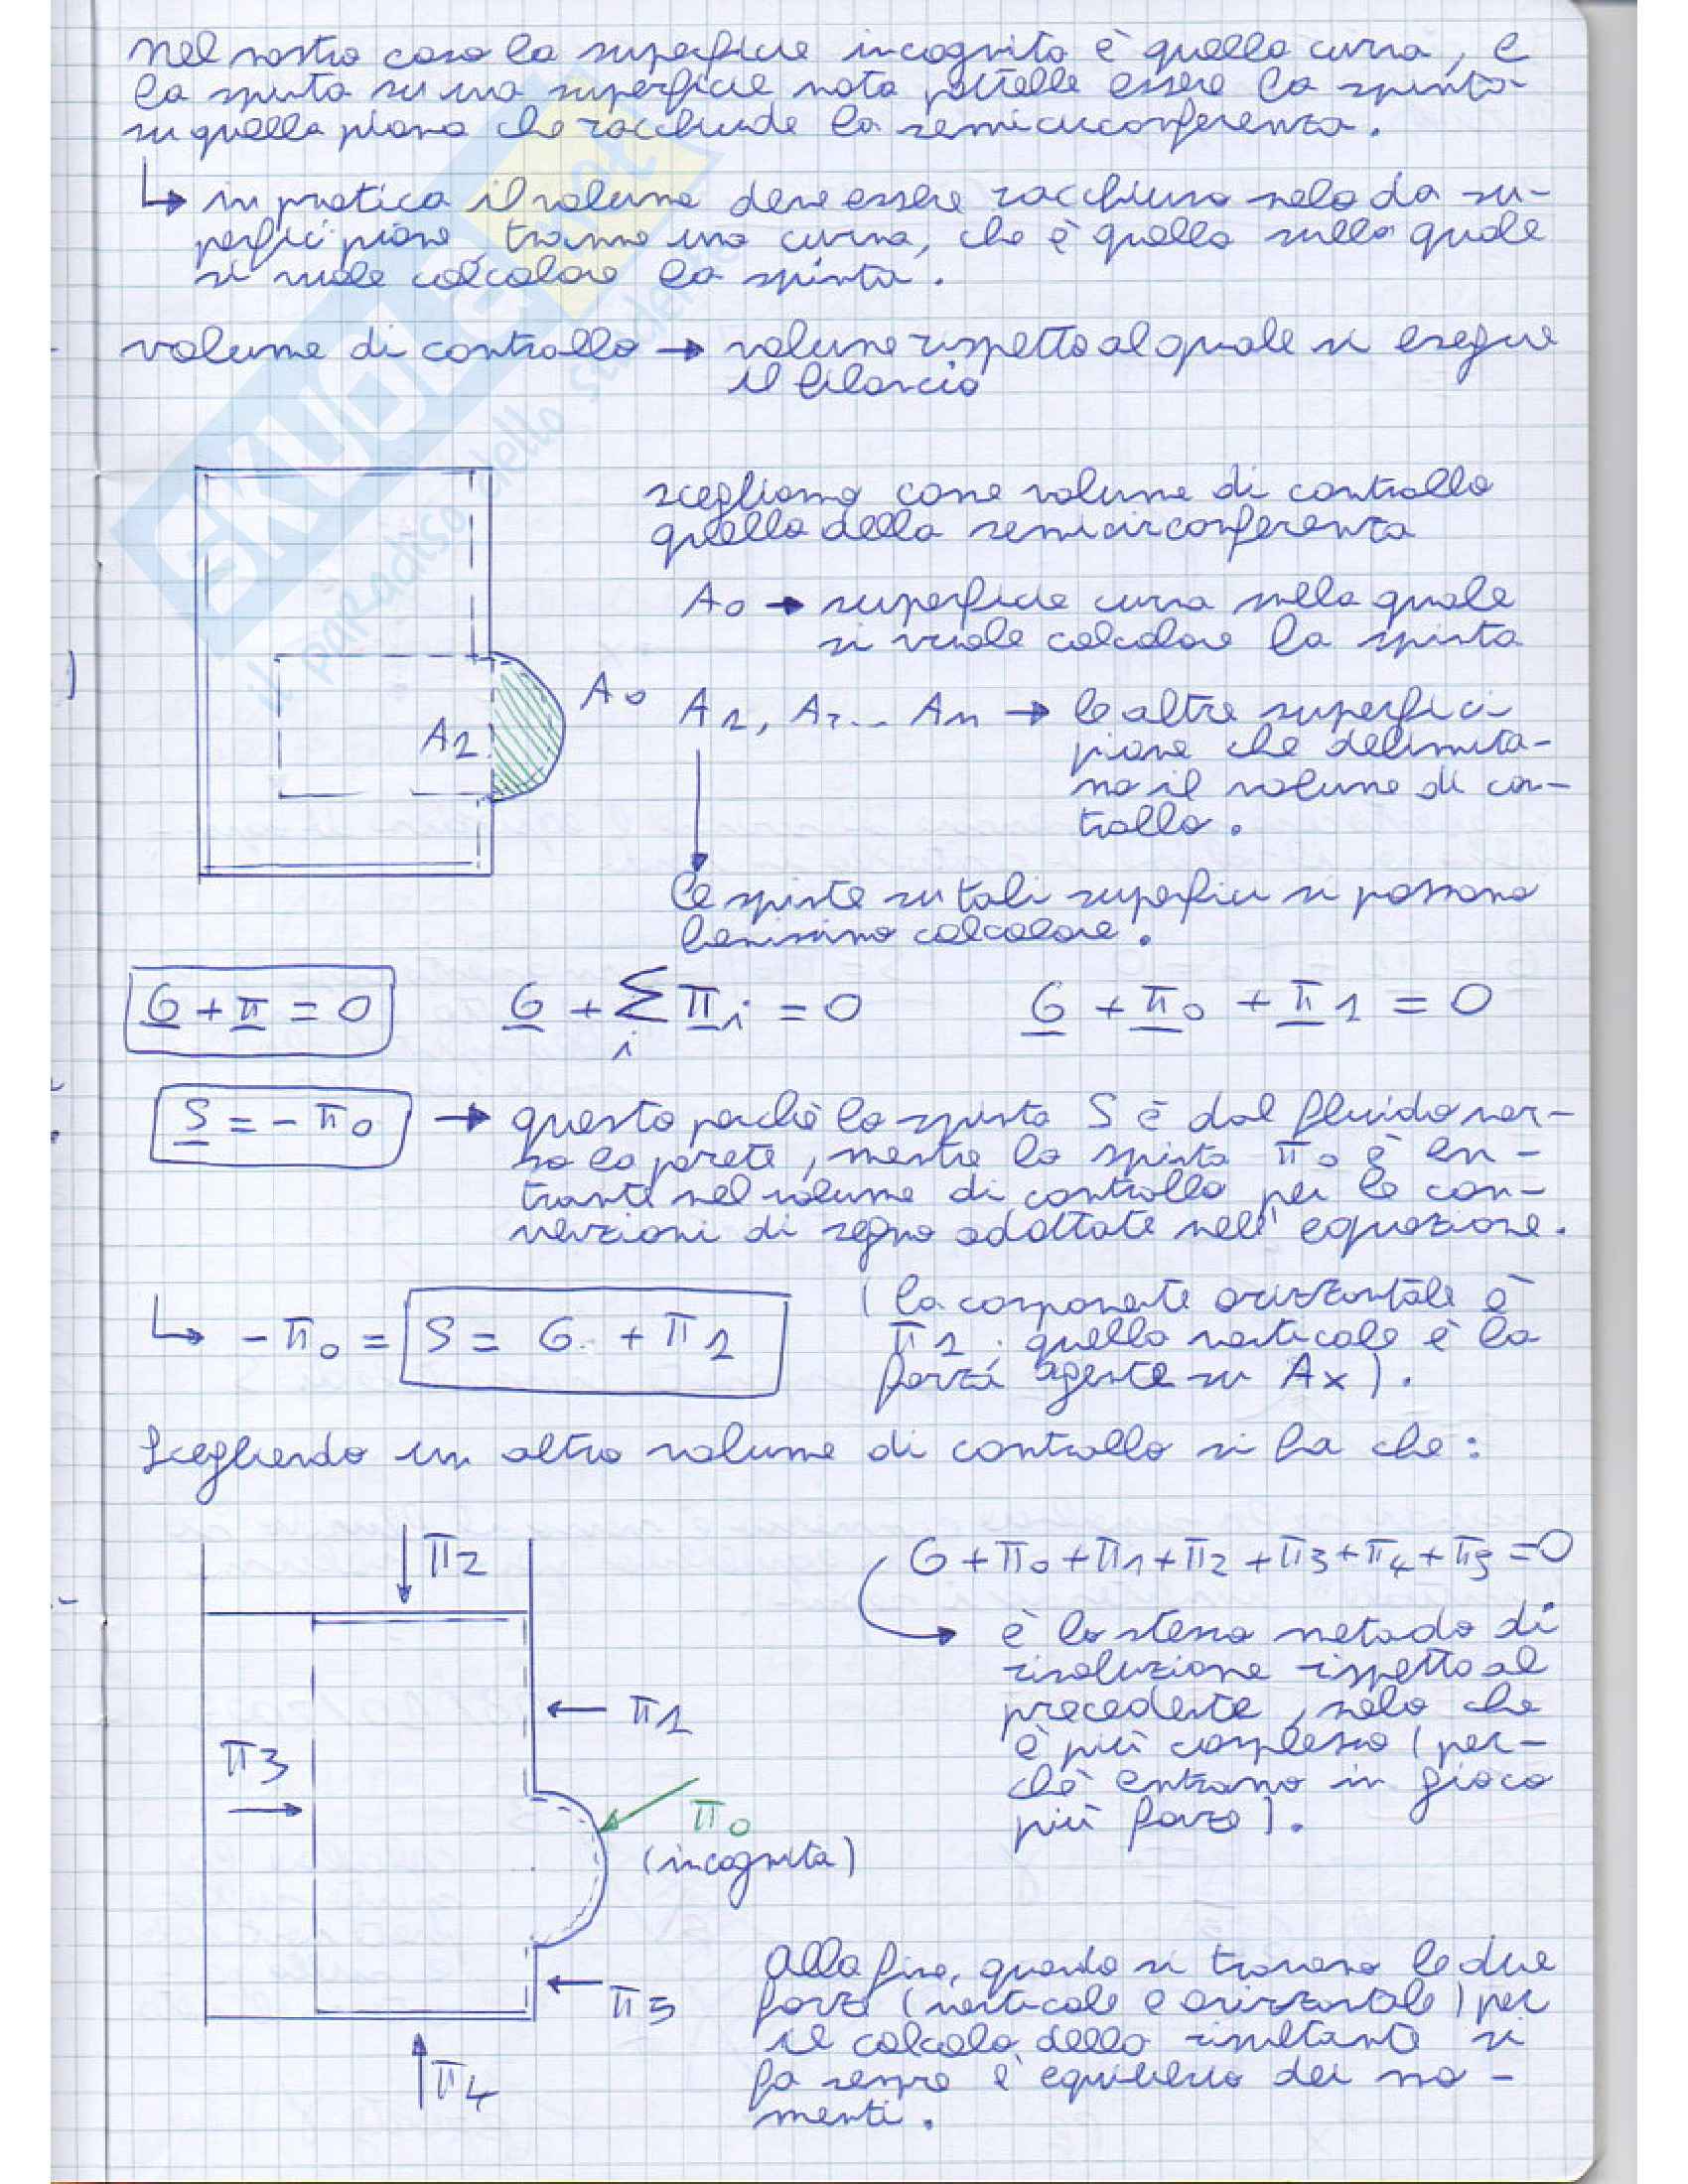 Nel nostro caso la superficie incognita è quella curva, e
la spinta su una superficie nota potrebbe essere la spinta
su quella piana che racchiude la semicirconferenza.
↳ in pratica il volume deve essere racchiuso solo da su-
perfici piane, tranne una curva, che è quella sulla quale
si vuole calcolare la spinta.
volume di controllo → volume rispetto al quale si esegue
il bilancio
scegliamo come volume di controllo
quello della semicirconferenza
A0 → superficie curva sulla quale
si vuole calcolare la spinta
A0
A1
A1, A2... An → le altre superfici
piane che delimita-
no il volume di con-
trollo.
le spinte su tali superfici si possono
benissimo calcolare.
G + π = 0   G + Σ πi = 0   G + π0 + π1 = 0
i
S = - π0 → questo perchè la spinta S è dal fluido ver-
so la parete, mentre la spinta π0 è en-
trante nel volume di controllo per le con-
venzioni di segno adottate nell'equazione.
↳ - π0 = S = G + π1 (la componente orizzontale è
π1. quella verticale è la
forza agente su Ax).
Scegliendo un altro volume di controllo si ha che:
G + π0 + π1 + π2 + π3 + π4 + π5 = 0
π2
è lo stesso metodo di
risoluzione rispetto al
precedente, solo che
è più complesso (per-
chè entrano in gioco
più forze).
π1
π3
π0
(incognita)
π5
π4
Alla fine, quando si trovano le due
forze (verticale e orizzontale) per
il calcolo della risultante si
fa sempre l'equilibrio dei mo-
menti.
SKUOLA.net
il paradiso dello studente